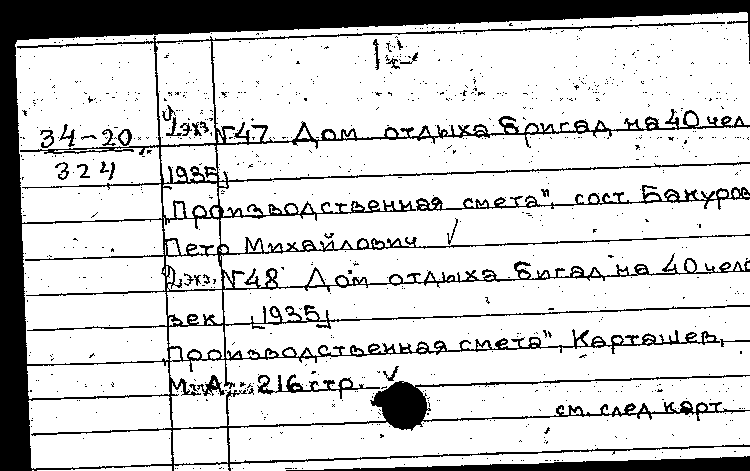 12
34-20 2 экз. №47 Дом отдыха бригад на 40 чел
324 [1935]
„Производственная смета", сост. Бакуров
Петр Михайлович ✓
2 экз. №48 Дом отдыха бигад на 40 чело
век [1935]
„Производственная смета", Карташев,
М. А. 216 стр. ✓
см. след карт.